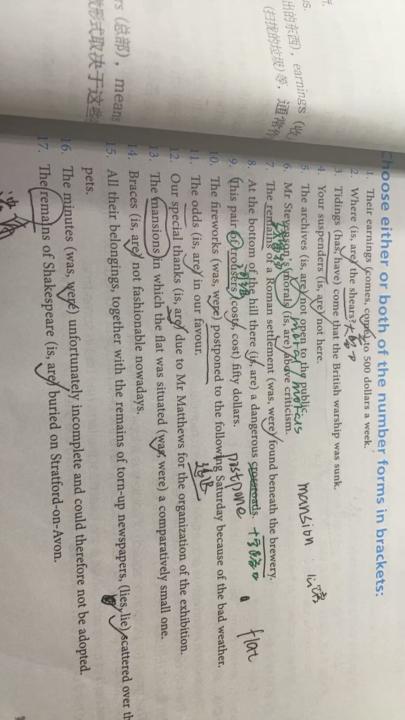 出的东西), earnings (收
(扫拢的垃圾)等, 通常
rs (总部), means
形式取决于这些
Choose either or both of the number forms in brackets:
1. Their earnings (comes, come) to 500 dollars a week.
2. Where (is, are) the shears?
3. Tidings (has, have) come that the British warship was sunk.
4. Your suspenders (is, are) not here.
5. The archives (is, are) not open to the public.
6. Mr Stevenson's morals (is, are) above criticism.
7. The remains of a Roman settlement (was, were) found beneath the brewery.
8. At the bottom of the hill there (is, are) a dangerous crossroads. 十字路口
9. This pair of trousers (costs, cost) fifty dollars.
10. The fireworks (was, were) postponed to the following Saturday because of the bad weather.
11. The odds (is, are) in our favour.
12. Our special thanks (is, are) due to Mr Matthews for the organization of the exhibition.
13. The mansions in which the flat was situated (was, were) a comparatively small one.
14. Braces (is, are) not fashionable nowadays.
15. All their belongings, together with the remains of torn-up newspapers, (lies, lie) scattered over
pets.
16. The minutes (was, were) unfortunately incomplete and could therefore not be adopted.
17. The remains of Shakespeare (is, are) buried on Stratford-on-Avon.
mansion
postpone
flat